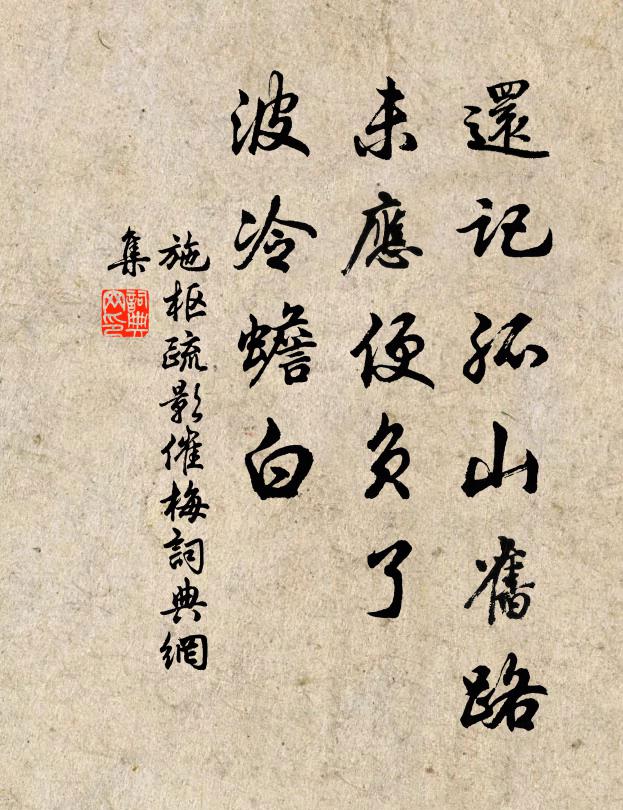 還記孤山舊路
未應便負了
波冷蟾白
施枢疏影催梅詞典網
集
詞典
网印